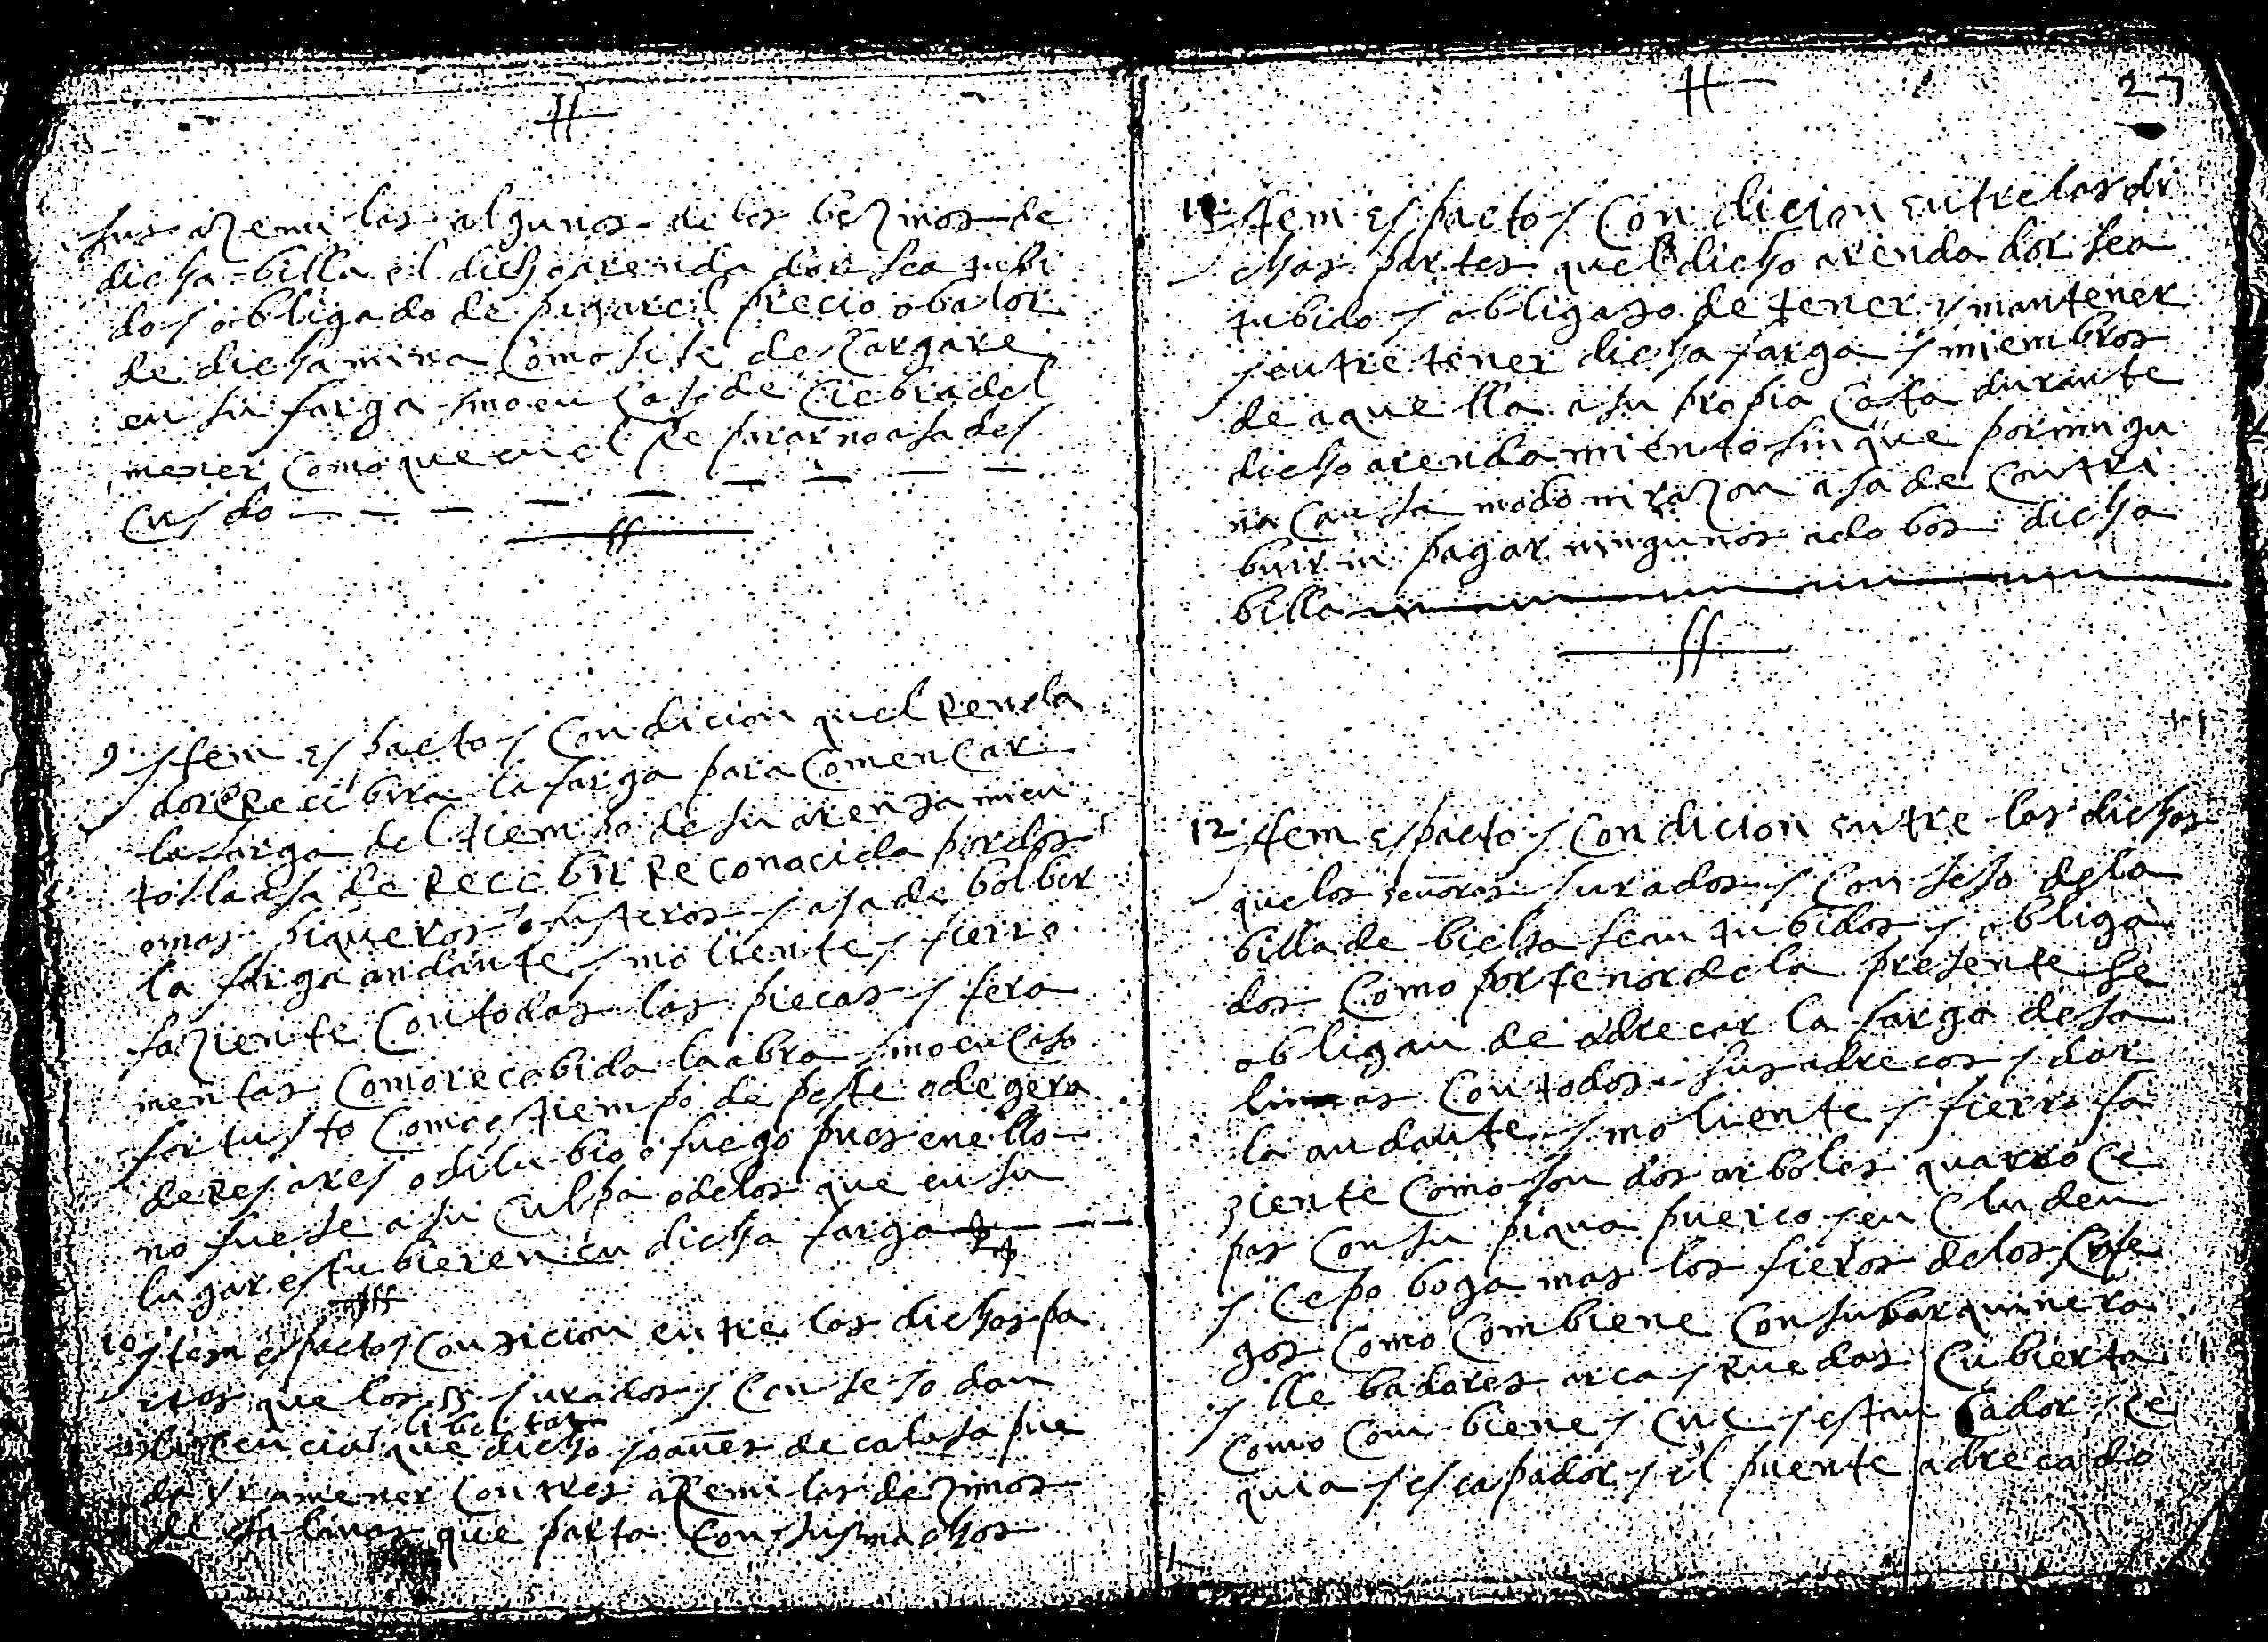 sus azemilas algunos de los bezinos de
dicha billa el dicho arendador sea tubi
do y obligado de pagar el precio o balor
de dicha mina como si se descargare
en su farga sino en caso de ciebra del
mener como que en el se parar no a sa de
cuydo
9 ytem es pacto y condicion quel Renda
dor Recibira la farga para comencar
la farga del tiempo de su arendamien
to lla asa de Recebir Reconocida por dos
o mas piqueros o fusteros y asa de bolber
la farga andante y moliente y fierro
faziente con todas las piecas y fera
mentas como recebida la abra sino en caso
fortuyto como es tiempo de peste o de gera
de Rey a rey o dilubio o fuego pues en ello
no fuese a su culpa o de los que en su
lugar estubieren en dicha farga
10 ytem es pacto y condicion entre las dichas pa
rtes que los ss jurados y consejo dan
licencia libertad que dicho joanes de calasa pue
da yr a mener con tres azemilas de zinos
de salinas que parta con sus machos
27
11 ytem es pacto y condicion entre las di
chas partes quel dicho arendador sea
tubido y obligado de tener y mantener
y entretener dicha farga y miembros
de aquella a su propia costa durante
dicho arendamiento sin que por ningu
na causa modo ni razon asa de contri
buir ni pagar ningunos adobos dicha
billa
12 ytem es pacto y condicion entre los dichos
que los señores jurados y consejo de la
billa de bielsa sean tubidos y obliga
dos como por tenor de la presente se
obligan de adrecar la farga de sa
linas con todos sus adrecos y dar
la andante y moliente y fierro fa
ziente como son dos arboles quatro ce
pas con su piqua puerco y encluden
y cepo boga mas los fieros de los
gos como combiene con su barquinera
y llebadores arca y Ruedas cubierta
como combiene y y estancador y ce
quia y escapador y el puente adrecado